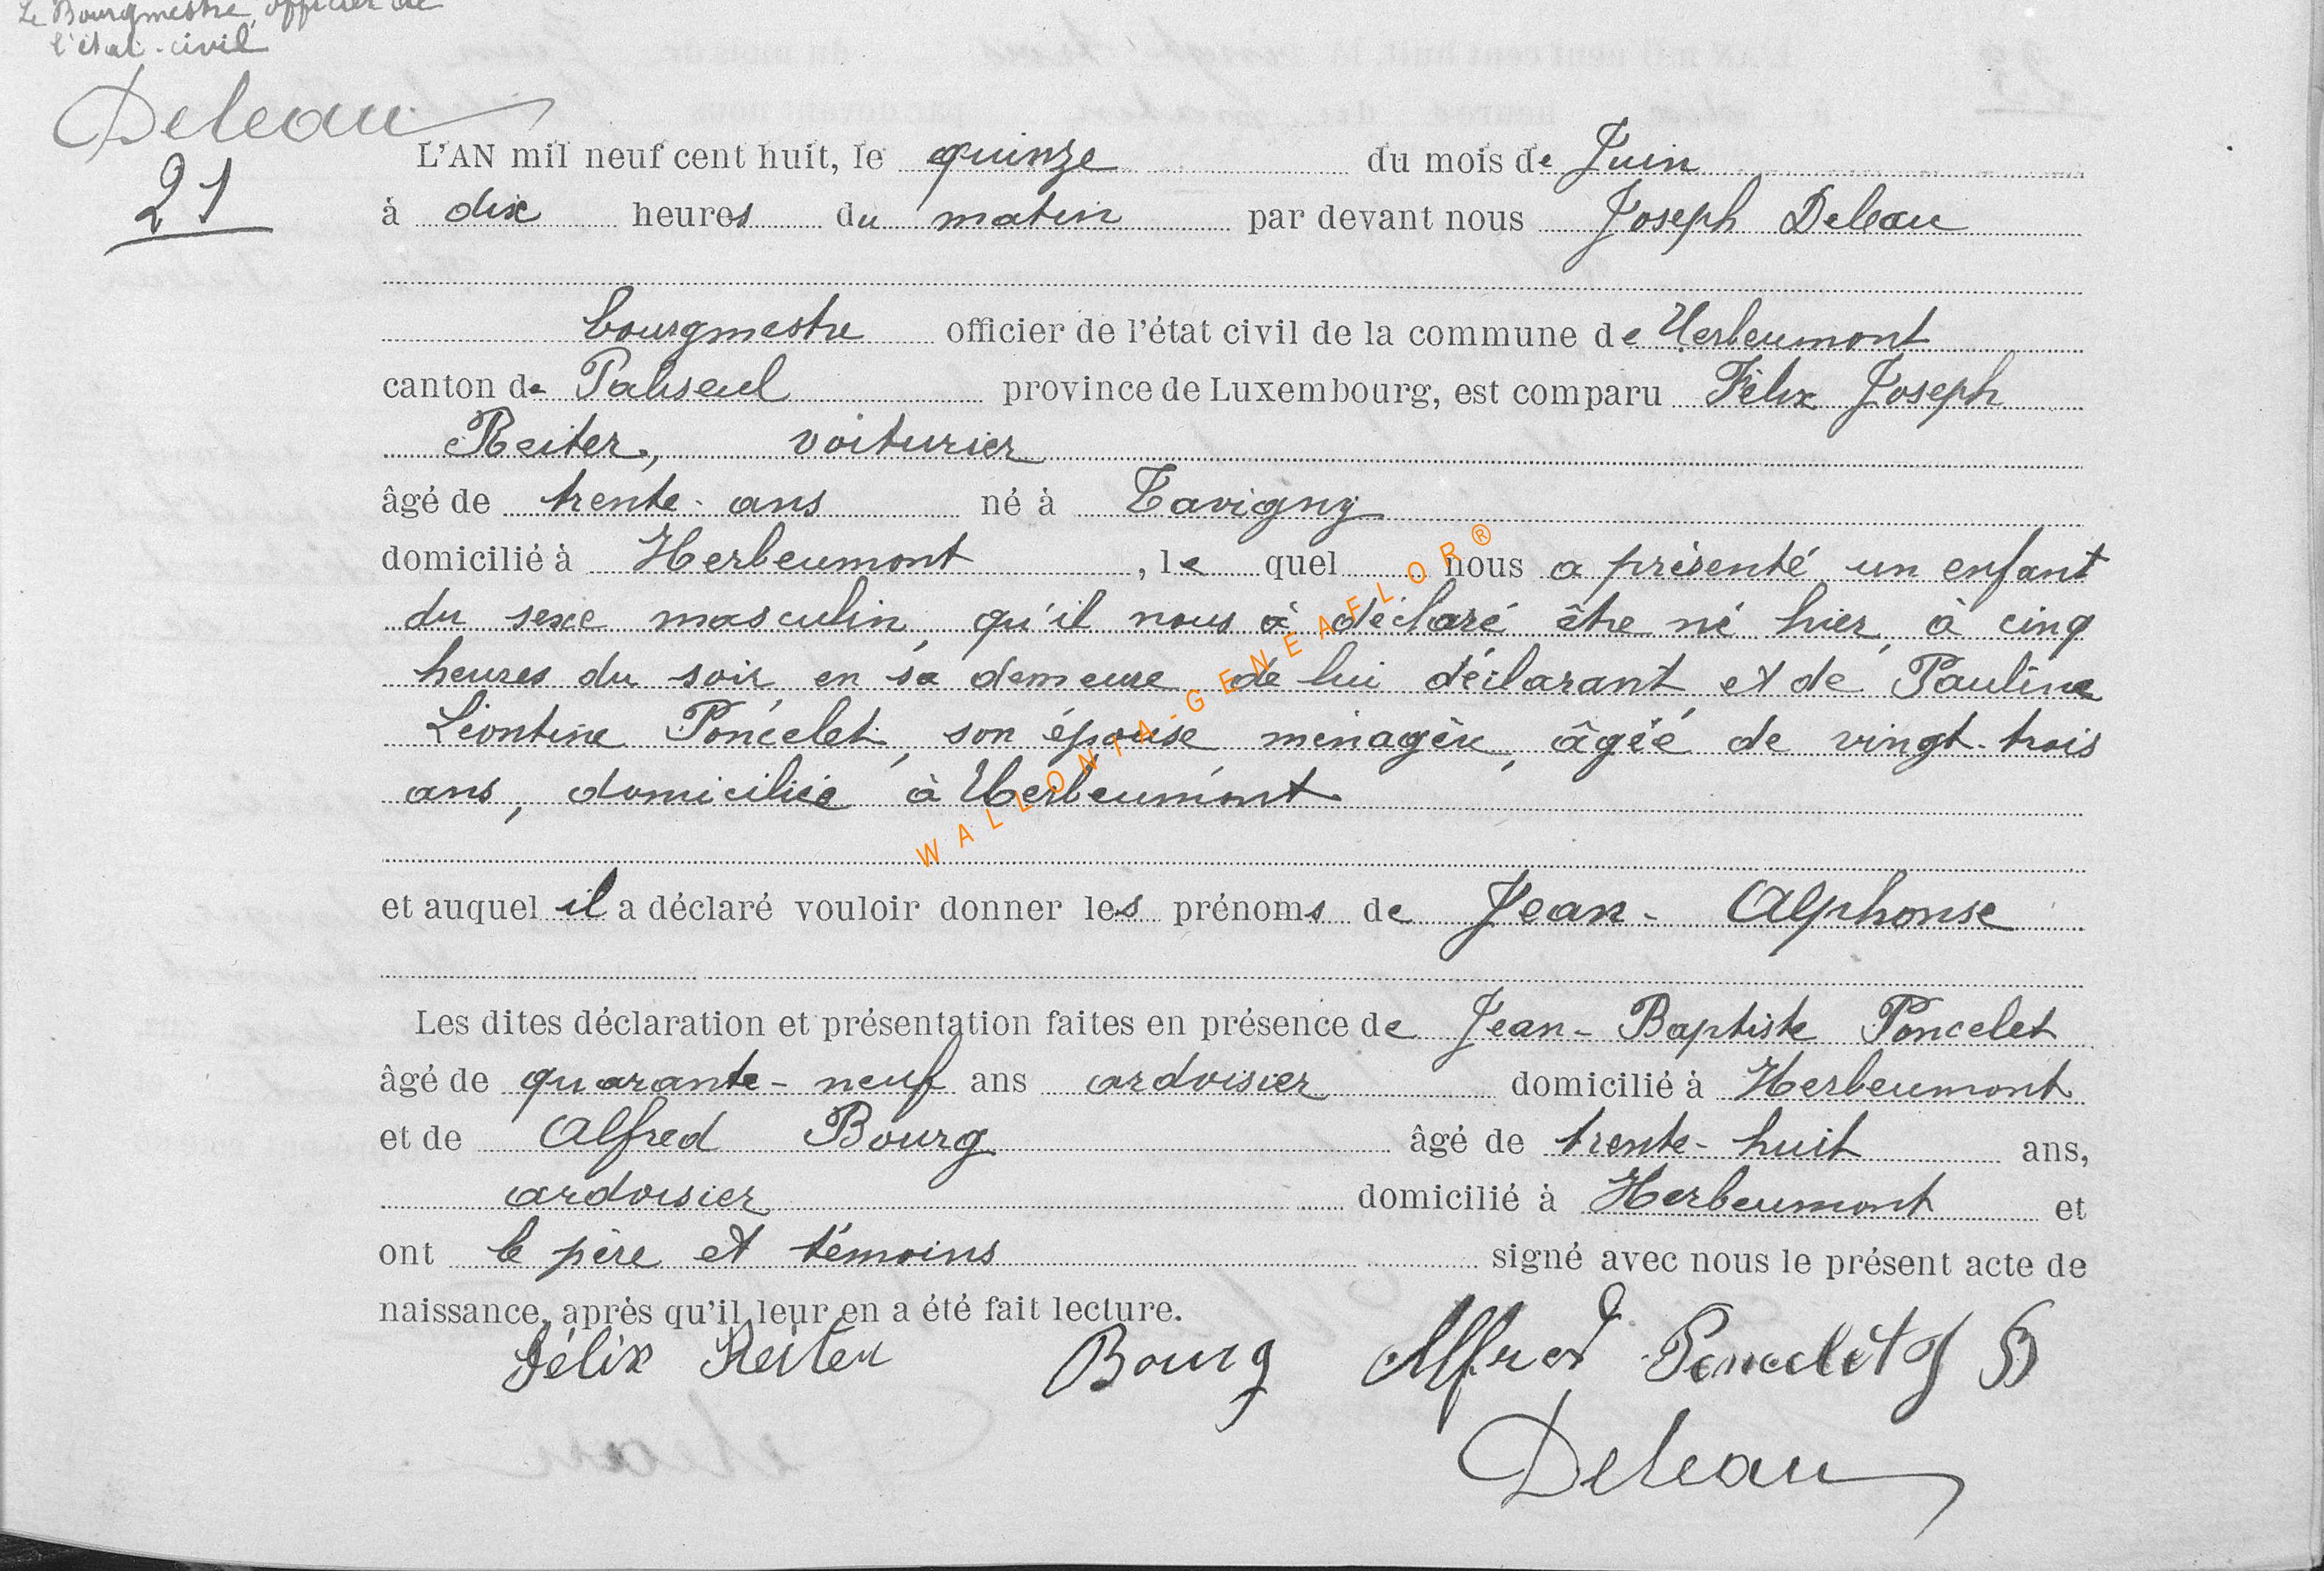 Le Bourgmestre, officier de
l'état-civil
Deleau
21
L'AN mil neuf cent huit, le quinze du mois de Juin
à dix heures du matin par devant nous Joseph Deleau
bourgmestre officier de l'état civil de la commune de Herbeumont
canton de Paliseul province de Luxembourg, est comparu Félix Joseph
Reiter, voiturier
âgé de trente-ans né à Tavigny
domicilié à Herbeumont, le quel nous a présenté un enfant
du sexe masculin, qu'il nous à déclaré être né hier, à cinq
heures du soir, en sa demeure, de lui déclarant, et de Pauline
Léontine Poncelet, son épouse, ménagère, âgée de vingt-trois
ans, domiciliée à Herbeumont
WALLONIA-GENEAFLOR®
et auquel il a déclaré vouloir donner les prénoms de Jean-Alphonse
Les dites déclaration et présentation faites en présence de Jean-Baptiste Poncelet
âgé de quarante-neuf ans ardoisier domicilié à Herbeumont
et de Alfred Bourg âgé de trente-huit ans,
ardoisier domicilié à Herbeumont et
ont le père et témoins signé avec nous le présent acte de
naissance, après qu'il leur en a été fait lecture.
Félix Reiter Bourg Alfred Poncelet
Deleau